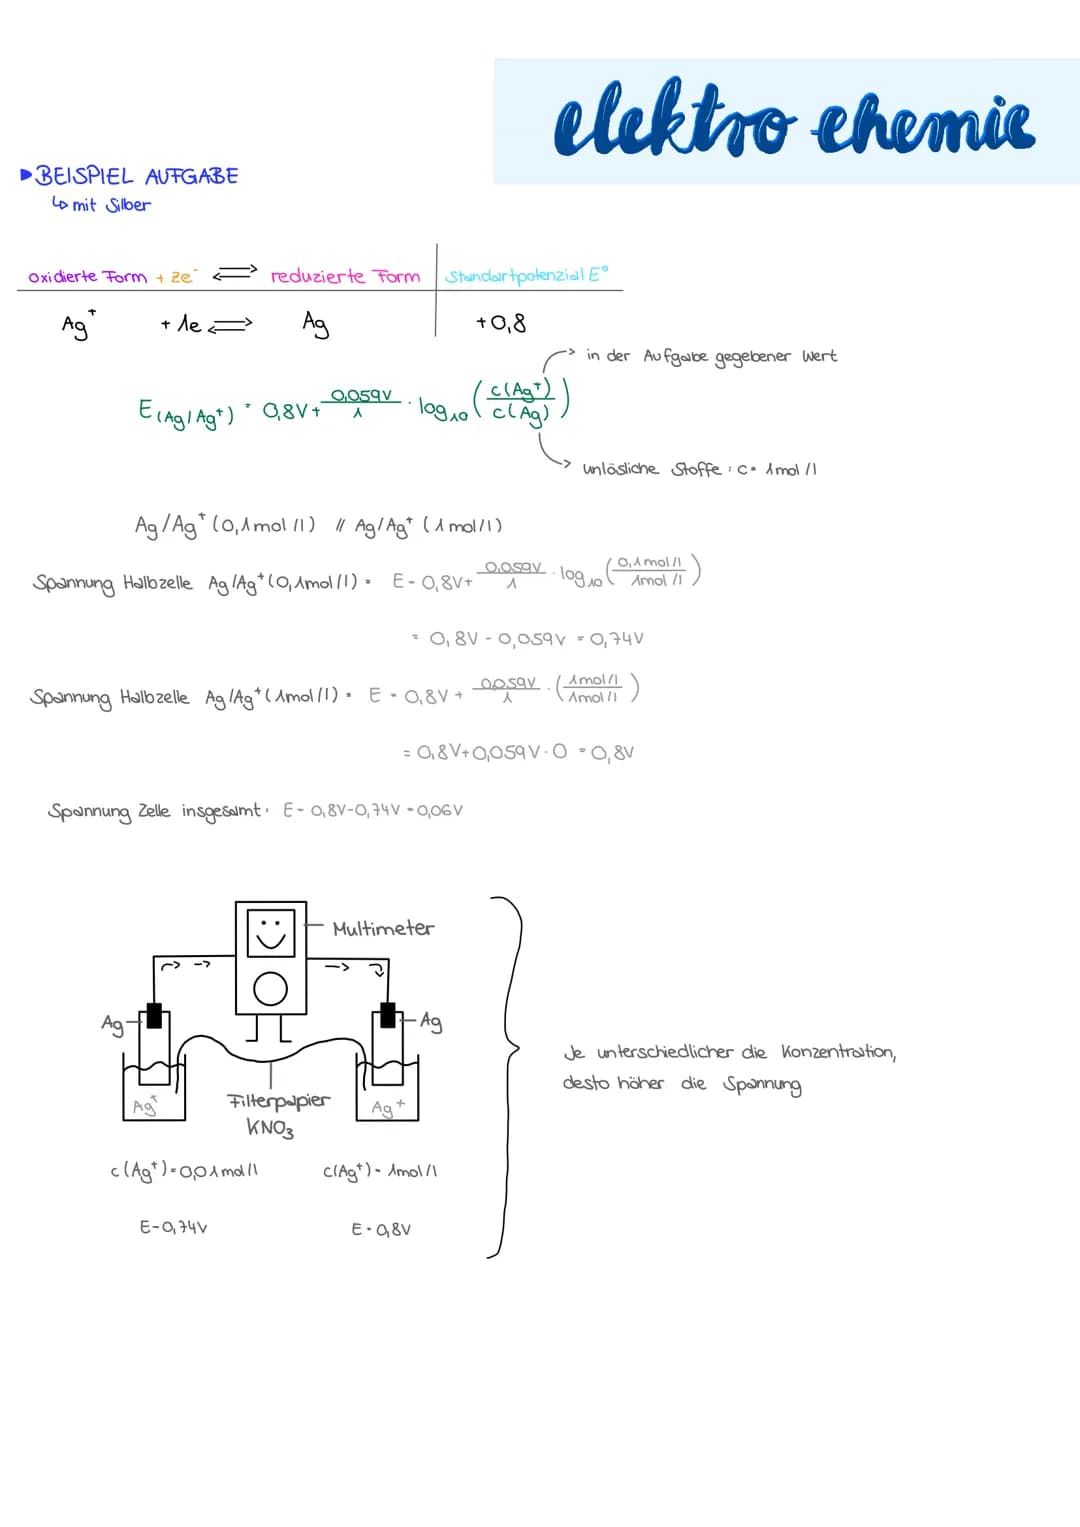 elektro chemie
▸BEISPIEL AUFGABE
↳ mit Silber
oxidierte Form + ze⁻ ⇌ reduzierte Form | Standartpotenzial E°
Ag⁺ + 1e ⇌ Ag | +0,8
→ in der Aufgabe gegebener Wert
E(Ag/Ag⁺) = 0,8V + 0,059V/1 · log₁₀ (c(Ag⁺)/c(Ag))
→ unlösliche Stoffe : c = 1mol/l
Ag/Ag⁺ (0,1mol/l) // Ag/Ag⁺ (1mol/l)
Spannung Halbzelle Ag/Ag⁺ (0,1mol/l) = E = 0,8V + 0,059V/1 · log₁₀ (0,1mol/l / 1mol/l)
= 0,8V - 0,059V = 0,74V
Spannung Halbzelle Ag/Ag⁺ (1mol/l) = E = 0,8V + 0,059V/1 · (1mol/l / 1mol/l)
= 0,8V + 0,059V · 0 = 0,8V
Spannung Zelle insgesamt: E = 0,8V - 0,74V = 0,06V
Multimeter
Ag
Ag
Je unterschiedlicher die Konzentration,
desto höher die Spannung
Ag⁺
Filterpapier
KNO₃
Ag⁺
c(Ag⁺) = 0,01mol/l
c(Ag⁺) = 1mol/l
E = 0,74V
E = 0,8V